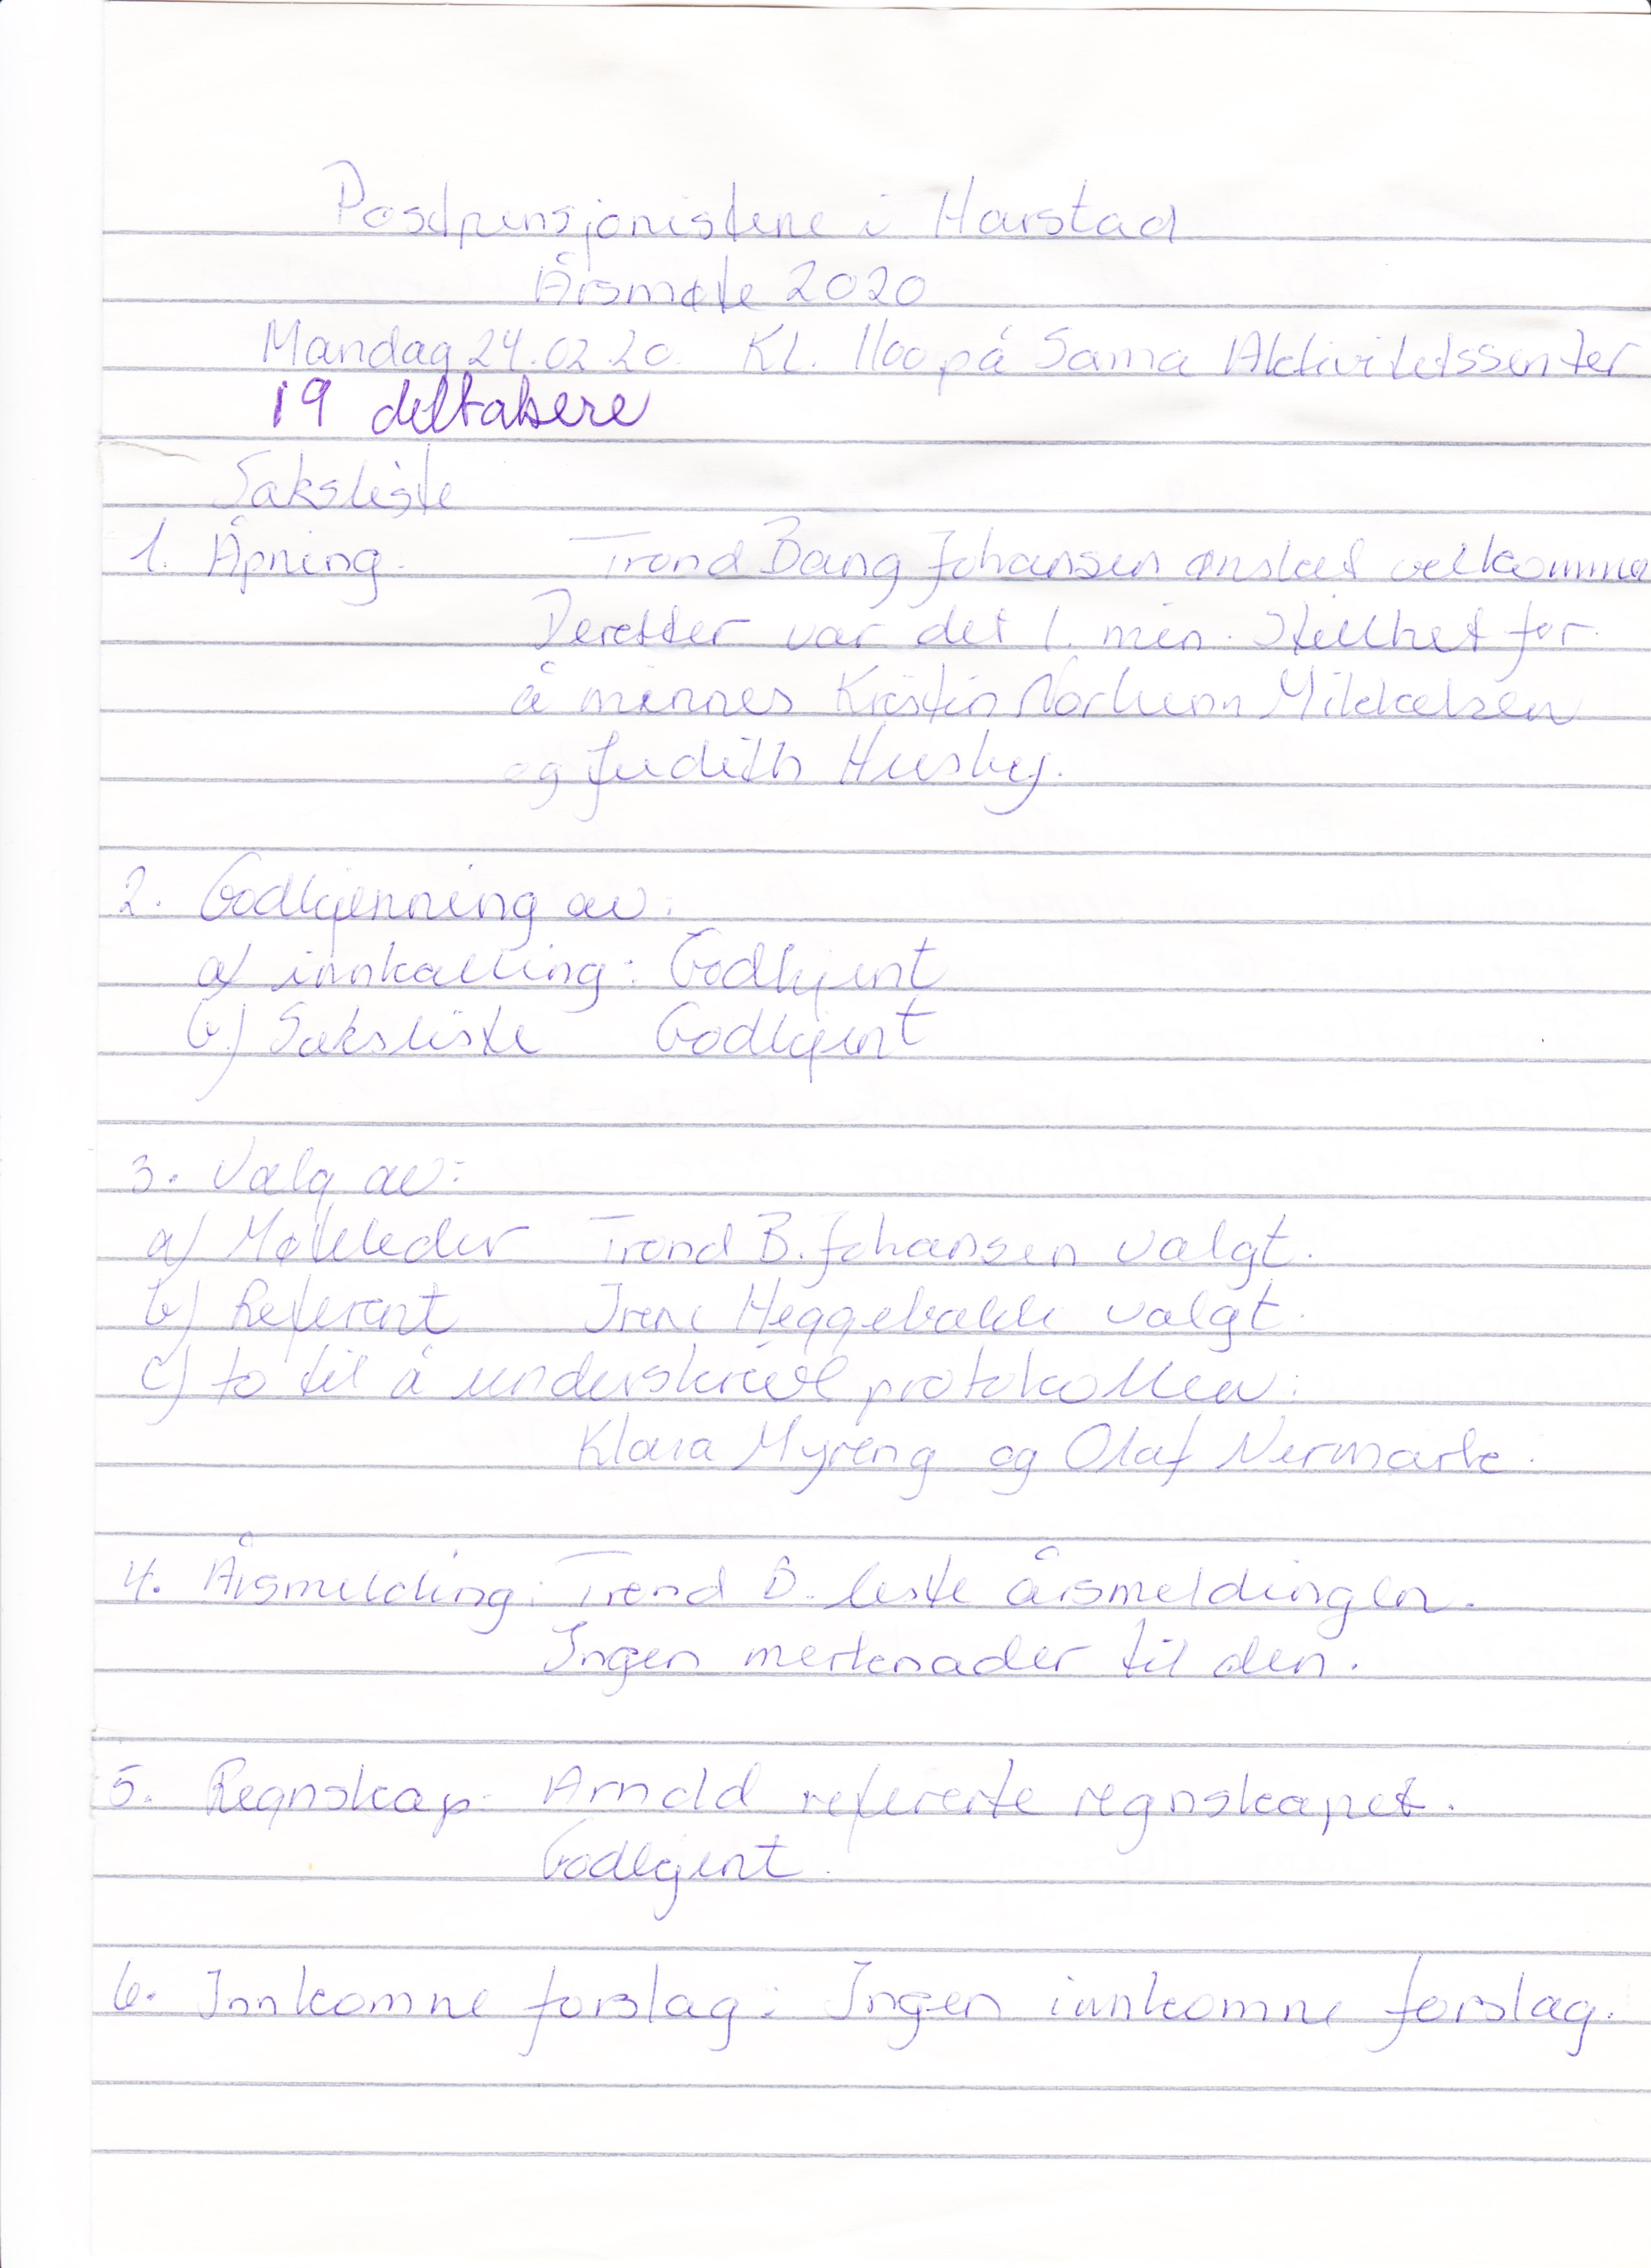 Postpensjonistene i Harstad
Årsmøte 2020
Mandag 24.02.20. Kl. 1100 på Sama Aktivitetssenter
19 deltakere
Saksliste
1. Åpning. Trond Bang Johansen ønsket velkommen
Deretter var det 1. min. Stillhet for
å minnes Kristin Norhenn Mikkelsen
og Judith Husby.
2. Godkjenning av:
a) innkalling: Godkjent
b.) Saksliste Godkjent
3. Valg av:
a) Møteleder Trond B. Johansen valgt.
b) Referent Irene Heggebakk valgt.
c) to til å underskrive protokollen:
Klara Myreng og Olaf Nermark.
4. Årsmelding: Trond B. leste årsmeldingen.
Ingen merknader til den.
5. Regnskap- Arnold refererte regnskapet.
Godkjent.
6. Innkomne forslag: Ingen innkomne forslag.